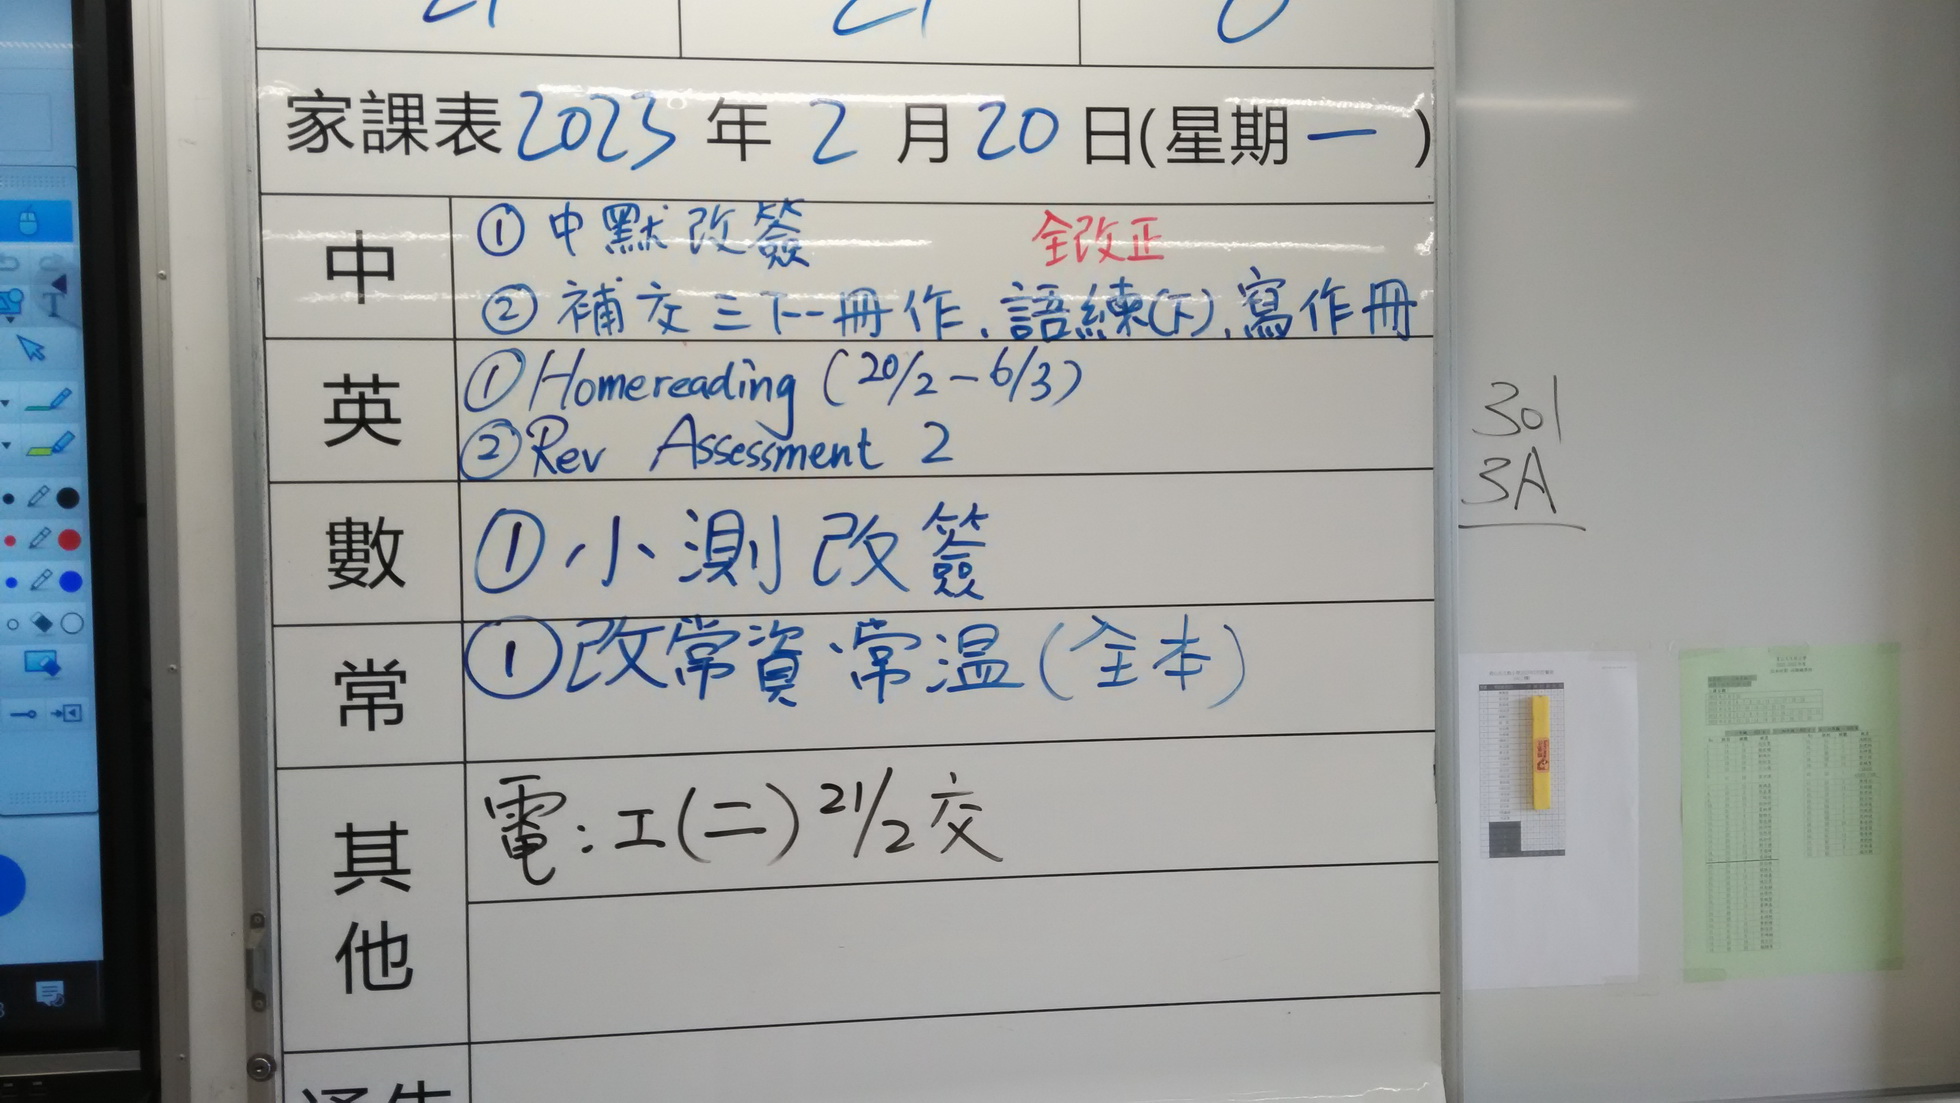 家課表 2023 年 2 月 20 日(星期一)
中
① 中默改簽 全改正
② 補交三下一冊作、語練(下)、寫作冊
英
① Homereading (20/2 - 6/3)
② Rev Assessment 2
數
① 小測改簽
常
① 改常資、常温(全本)
其他
電:工(二) 21/2 交
301
3A